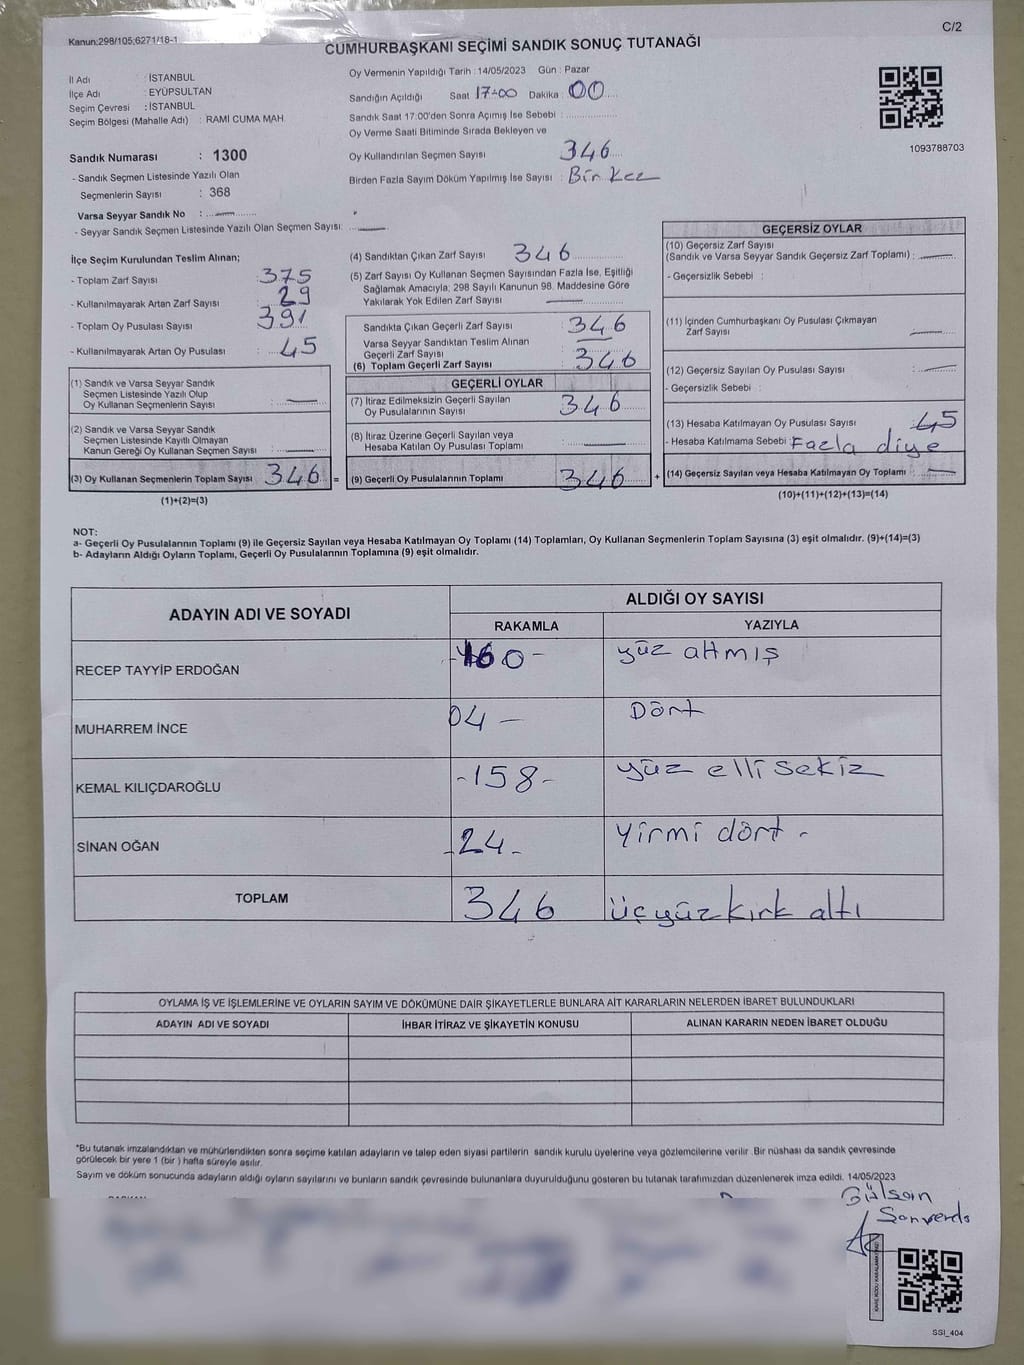 Kanun:298/105;6271/18-1
C/2
CUMHURBAŞKANI SEÇİMİ SANDIK SONUÇ TUTANAĞI
İl Adı : İSTANBUL
İlçe Adı : EYÜPSULTAN
Seçim Çevresi : İSTANBUL
Seçim Bölgesi (Mahalle Adı) : RAMİ CUMA MAH.
Sandık Numarası : 1300
- Sandık Seçmen Listesinde Yazılı Olan
Seçmenlerin Sayısı : 368
Varsa Seyyar Sandık No :
- Seyyar Sandık Seçmen Listesinde Yazılı Olan Seçmen Sayısı:
Oy Vermenin Yapıldığı Tarih : 14/05/2023 Gün : Pazar
Sandığın Açıldığı Saat 17-00 Dakika : 00
Sandık Saat 17:00'den Sonra Açımış İse Sebebi :
Oy Verme Saati Bitiminde Sırada Bekleyen ve
Oy Kullandırılan Seçmen Sayısı 346
Birden Fazla Sayım Döküm Yapılmış İse Sayısı : Bir kez
1093788703
İlçe Seçim Kurulundan Teslim Alınan;
- Toplam Zarf Sayısı : 375
- Kullanılmayarak Artan Zarf Sayısı : 29
- Toplam Oy Pusulası Sayısı : 391
- Kullanılmayarak Artan Oy Pusulası : 45
(1) Sandık ve Varsa Seyyar Sandık
Seçmen Listesinde Yazılı Olup
Oy Kullanan Seçmenlerin Sayısı :
(2) Sandık ve Varsa Seyyar Sandık
Seçmen Listesinde Kayıtlı Olmayan
Kanun Gereği Oy Kullanan Seçmen Sayısı :
(3) Oy Kullanan Seçmenlerin Toplam Sayısı 346 =
(1)+(2)=(3)
(4) Sandıktan Çıkan Zarf Sayısı 346
(5) Zarf Sayısı Oy Kullanan Seçmen Sayısından Fazla İse, Eşitliği
Sağlamak Amacıyla; 298 Sayılı Kanunun 98. Maddesine Göre
Yakılarak Yok Edilen Zarf Sayısı
Sandıkta Çıkan Geçerli Zarf Sayısı : 346
Varsa Seyyar Sandıktan Teslim Alınan
Geçerli Zarf Sayısı :
(6) Toplam Geçerli Zarf Sayısı : 346
GEÇERLİ OYLAR
(7) İtiraz Edilmeksizin Geçerli Sayılan
Oy Pusulalarının Sayısı : 346
(8) İtiraz Üzerine Geçerli Sayılan veya
Hesaba Katılan Oy Pusulası Sayısı :
(9) Geçerli Oy Pusulalarının Toplamı 346 +
GEÇERSİZ OYLAR
(10) Geçersiz Zarf Sayısı
(Sandık ve Varsa Seyyar Sandık Geçersiz Zarf Toplamı) :
- Geçersizlik Sebebi :
(11) İçinden Cumhurbaşkanı Oy Pusulası Çıkmayan
Zarf Sayısı
(12) Geçersiz Sayılan Oy Pusulası Sayısı :
- Geçersizlik Sebebi :
(13) Hesaba Katılmayan Oy Pusulası Sayısı : 45
- Hesaba Katılmama Sebebi : Fazla diye
(14) Geçersiz Sayılan veya Hesaba Katılmayan Oy Toplamı :
(10)+(11)+(12)+(13)=(14)
NOT:
a- Geçerli Oy Pusulalarının Toplamı (9) ile Geçersiz Sayılan veya Hesaba Katılmayan Oy Toplamı (14) Toplamları, Oy Kullanan Seçmenlerin Toplam Sayısına (3) eşit olmalıdır. (9)+(14)=(3)
b- Adayların Aldığı Oyların Toplamı, Geçerli Oy Pusulalarının Toplamına (9) eşit olmalıdır.
ADAYIN ADI VE SOYADI ALDIĞI OY SAYISI
RAKAMLA YAZIYLA
RECEP TAYYİP ERDOĞAN -160- yüz altmış
MUHARREM İNCE 04- Dört
KEMAL KILIÇDAROĞLU -158- yüz elli sekiz
SİNAN OĞAN -24- yirmi dört -
TOPLAM 346 üçyüzkırk altı
OYLAMA İŞ VE İŞLEMLERİNE VE OYLARIN SAYIM VE DÖKÜMÜNE DAİR ŞİKAYETLERLE BUNLARA AİT KARARLARIN NELERDEN İBARET BULUNDUKLARI
ADAYIN ADI VE SOYADI İHBAR İTİRAZ VE ŞİKAYETİN KONUSU ALINAN KARARIN NEDEN İBARET OLDUĞU
*Bu tutanak imzalandıktan ve mühürlendikten sonra seçime katılan adayların ve talep eden siyasi partilerin sandık kurulu üyelerine veya gözlemcilerine verilir. Bir nüshası da sandık çevresinde
görülecek bir yere 1 (bir ) hafta süreyle asılır.
Sayım ve döküm sonucunda adayların aldığı oyların sayılarını ve bunların sandık çevresinde bulunanlara duyurulduğunu gösteren bu tutanak tarafımızdan düzenlenerek imza edildi. 14/05/2023
SSI_404